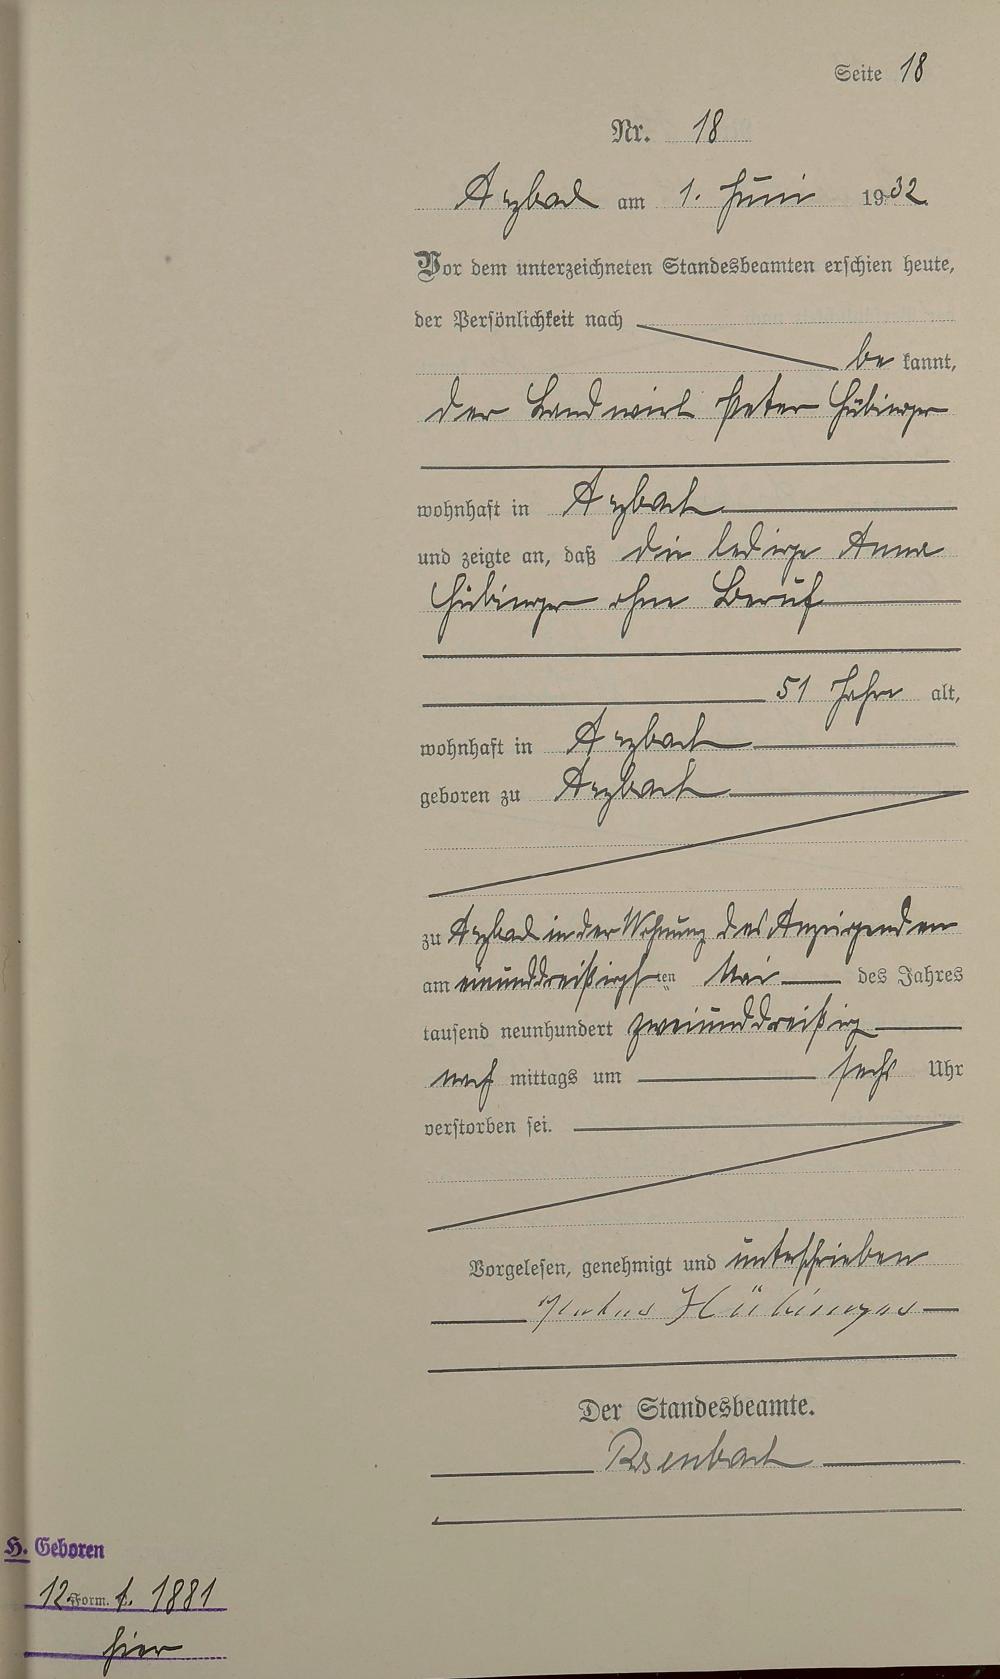 Seite 18
Nr. 18
Arzbach am 1. Juni 1932
Vor dem unterzeichneten Standesbeamten erschien heute,
der Persönlichkeit nach
be kannt,
der Landwirt Peter Hübinger
wohnhaft in Arzbach
und zeigte an, daß die ledige Anna
Hübinger ohne Beruf
51 Jahre alt,
wohnhaft in Arzbach
geboren zu Arzbach
zu Arzbach in der Wohnung des Anzeigenden
am einunddreißigsten Mai des Jahres
tausend neunhundert zweiunddreißig
nach mittags um sechs Uhr
verstorben sei.
Vorgelesen, genehmigt und unterschrieben
Peter Hübinger
Der Standesbeamte.
H. Geboren
12 Form. 1881
hier